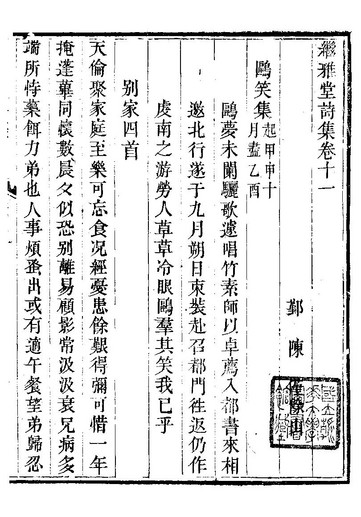 繼雅堂詩集卷十一
鄞 陳
鷗笑集 起甲申十
月盡乙酉
鷗夢未闌驪歌遽唱竹素師以卓薦入都書來相
邀北行遂于九月朔日束裝赴召都門往返仍作
虔南之游勞人草草冷眼鷗羣其笑我已乎
别家四首
天倫聚家庭至樂可忘食况經憂患餘艱得彌可惜一年
掩蓬蓽同懷數晨夕似恐别離易顧影常汲汲衰兄病多
端所恃藥餌力弟也人事煩蚤出或有適午餐望弟歸忍